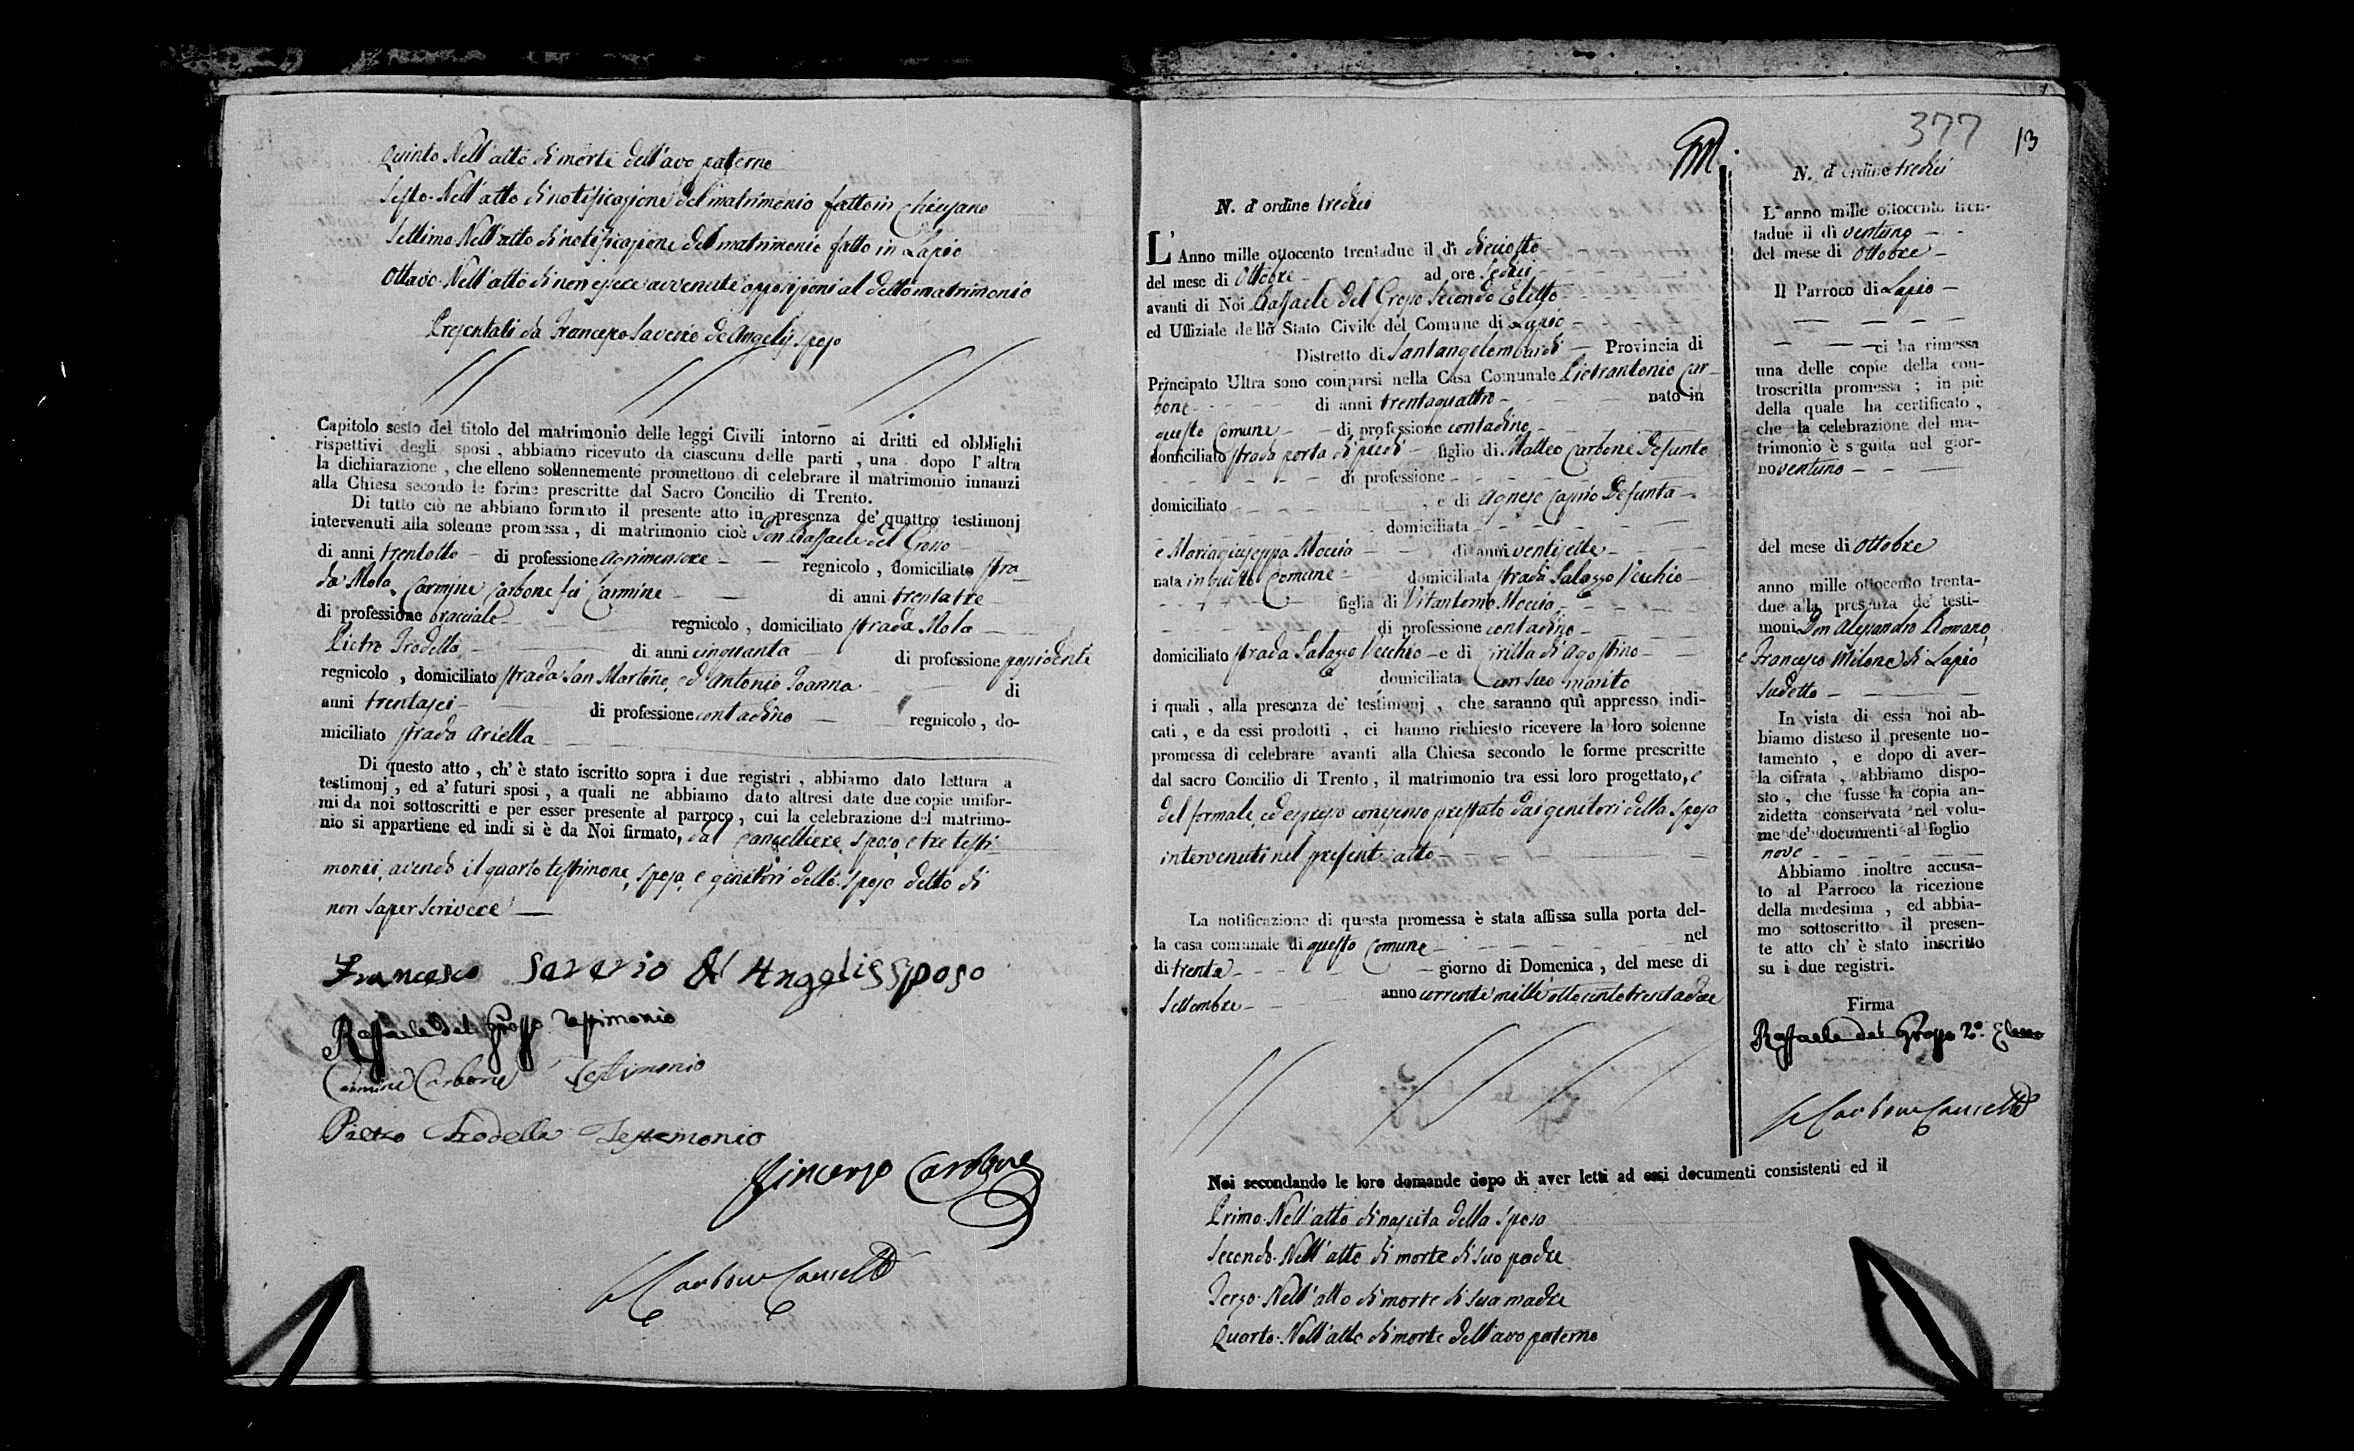 Quinto Nell'atto di morte dell'avo paterno
Sesto. Nell'atto di notificazione del matrimonio fatto in Chiusano
Settimo Nell'atto di notificazione del matrimonio fatto in Lapio
Ottavo. Nell'atto di non essere avvenute opposizioni al detto matrimonio
Presentati da Francesco Saverio de Angelis sposo
Capitolo sesto del titolo del matrimonio delle leggi Civili intorno ai dritti ed obblighi
rispettivi degli sposi, abbiamo ricevuto da ciascuna delle parti, una dopo l'altra
la dichiarazione, che elleno sollennemente promettono di celebrare il matrimonio innanzi
alla Chiesa secondo le forme prescritte dal Sacro Concilio di Trento.
Di tutto ciò ne abbiano formato il presente atto in presenza de' quattro testimonj
intervenuti alla solenne promessa, di matrimonio cioè Don Raffaele del Grosso
di anni trentotto di professione agrimensore regnicolo, domiciliato stra-
da Mola, Carmine Carbone fù Carmine di anni trentatre
di professione bracciale regnicolo, domiciliato strada Mola
Pietro Trodella di anni cinquanta di professione possidente
regnicolo, domiciliato strada San Martino, ed Antonio Joanna di
anni trentasei di professione contadino regnicolo, do-
miciliato strada Ariella
Di questo atto, ch'è stato iscritto sopra i due registri, abbiamo dato lettura a
testimonj, ed a' futuri sposi, a quali ne abbiamo dato altresi date due copie unifor-
mi da noi sottoscritti e per esser presente al parroco, cui la celebrazione del matrimo-
nio si appartiene ed indi si è da Noi firmato, dal Cancelliere, sposo, e tre testi-
monii, avendo il quarto testimone, sposa, e genitori della sposa detto di
non saper scrivere
Francesco Saverio d'Angelis sposo
Raffaele del Grosso Testimonio
Carmine Carbone Testimonio
Pietro Trodella Testemonio
Vincenzo Carbone
Carbone Cancell
377
13
N. d'ordine tredici
L'Anno mille ottocento trentadue il di dieciotto
del mese di Ottobre ad ore sedici
avanti di Noi Raffaele del Grosso Secondo Eletto
ed Uffiziale dello Stato Civile del Comune di Lapio
Distretto di Santangelombardi Provincia di
Principato Ultra sono comparsi nella Casa Comunale Pietrantonio Car-
bone di anni trentaquattro nato in
questo Comune di professione contadino
domiciliato strada porta di piedi figlio di Matteo Carbone Defunto
di professione
domiciliato , e di Agnese Caprio Defunta
domiciliata
e Mariagiuseppa Moccia di anni ventisette
nata in questo Comune domiciliata strada Palazzo Vecchio
figlia di Vitantonio Moccia
di professione contadino
domiciliato strada Palazzo Vecchio e di Cirilla di Agostino
domiciliata con suo marito
i quali, alla presenza de' testimonj, che saranno quì appresso indi-
cati, e da essi prodotti, ci hanno richiesto ricevere la loro solenne
promessa di celebrare avanti alla Chiesa secondo le forme prescritte
dal sacro Concilio di Trento, il matrimonio tra essi loro progettato, e
del formale, ed espresso consenso prestato dai genitori della sposa
intervenuti nel presente atto
La notificazione di questa promessa è stata affissa sulla porta del-
la casa comunale di questo Comune nel
di trenta giorno di Domenica, del mese di
Settembre anno corrente mille ottocento trentadue
Noi secondando le loro domande dopo di aver letti ad essi documenti consistenti ed il
Primo. Nell'atto di nascita della sposa
Secondo. Nell'atto di morte di suo padre
Terzo. Nell'atto di morte di sua madre
Quarto. Nell'atto di morte dell'avo paterno
N. d'ordine tredici
L'anno mille ottocento tren-
tadue il di ventuno
del mese di Ottobre
Il Parroco di Lapio
ci ha rimessa
una delle copie della con-
troscritta promessa; in piè
della quale ha certificato,
che la celebrazione del ma-
trimonio è seguita nel gior-
no ventuno
del mese di Ottobre
anno mille ottocento trenta-
due alla presenza de' testi-
moni Don Alessandro Romano,
e Francesco Milone di Lapio
sudetto
In vista di essa noi ab-
biamo disteso il presente no-
tamento, e dopo di aver-
la cifrata, abbiamo dispo-
sto, che fusse la copia an-
zidetta conservata nel volu-
me de' documenti al foglio
nove
Abbiamo inoltre accusa-
to al Parroco la ricezione
della medesima, ed abbia-
mo sottoscritto il presen-
te atto ch'è stato inscritto
su i due registri.
Firma
Raffaele del Grosso 2º. Eletto
Carbone Cancell